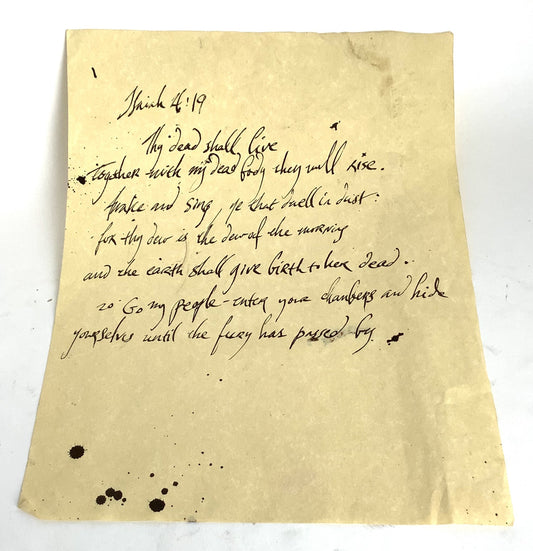 Isaiah 4:19
Thy dead shall live
Together with my dead body they will rise.
Awake and sing ye that dwell in dust:
for thy dew is the dew of the morning
and the earth shall give birth to her dead.
20 Go my people - enter your chambers and hide
yourselves until the fury has passed by.